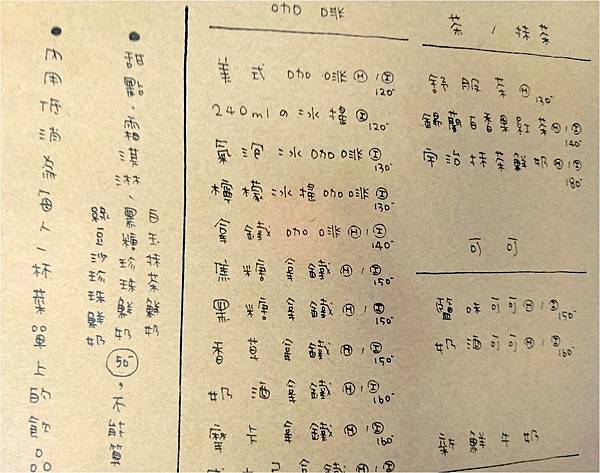 咖啡
美式咖啡Ⓗ/Ⓘ 120-
240ml の冰搖Ⓘ 120-
氣泡冰咖啡Ⓘ 130-
檸檬冰搖咖啡Ⓘ 130-
拿鐵咖啡Ⓗ/Ⓘ 140-
焦糖拿鐵Ⓗ/Ⓘ 150-
黑糖拿鐵Ⓗ/Ⓘ 150-
香草拿鐵Ⓗ/Ⓘ 150-
奶酒拿鐵Ⓗ/Ⓘ 160-
摩卡拿鐵Ⓗ/Ⓘ 160-
茶/抹茶
舒服茶Ⓗ 130-
錫蘭百香果紅茶Ⓗ/Ⓘ
宇治抹茶鮮奶Ⓗ/Ⓘ 180-
可可
鹽味可可Ⓗ/Ⓘ 150-
奶酒可可Ⓗ/Ⓘ 160-
新鮮牛奶
●甜點、霜淇淋、黑糖珍珠鮮奶 50-,不能算
白玉抹茶鮮奶
綠豆沙珍珠鮮奶
●內用低消為每人一杯菜單上的飲品